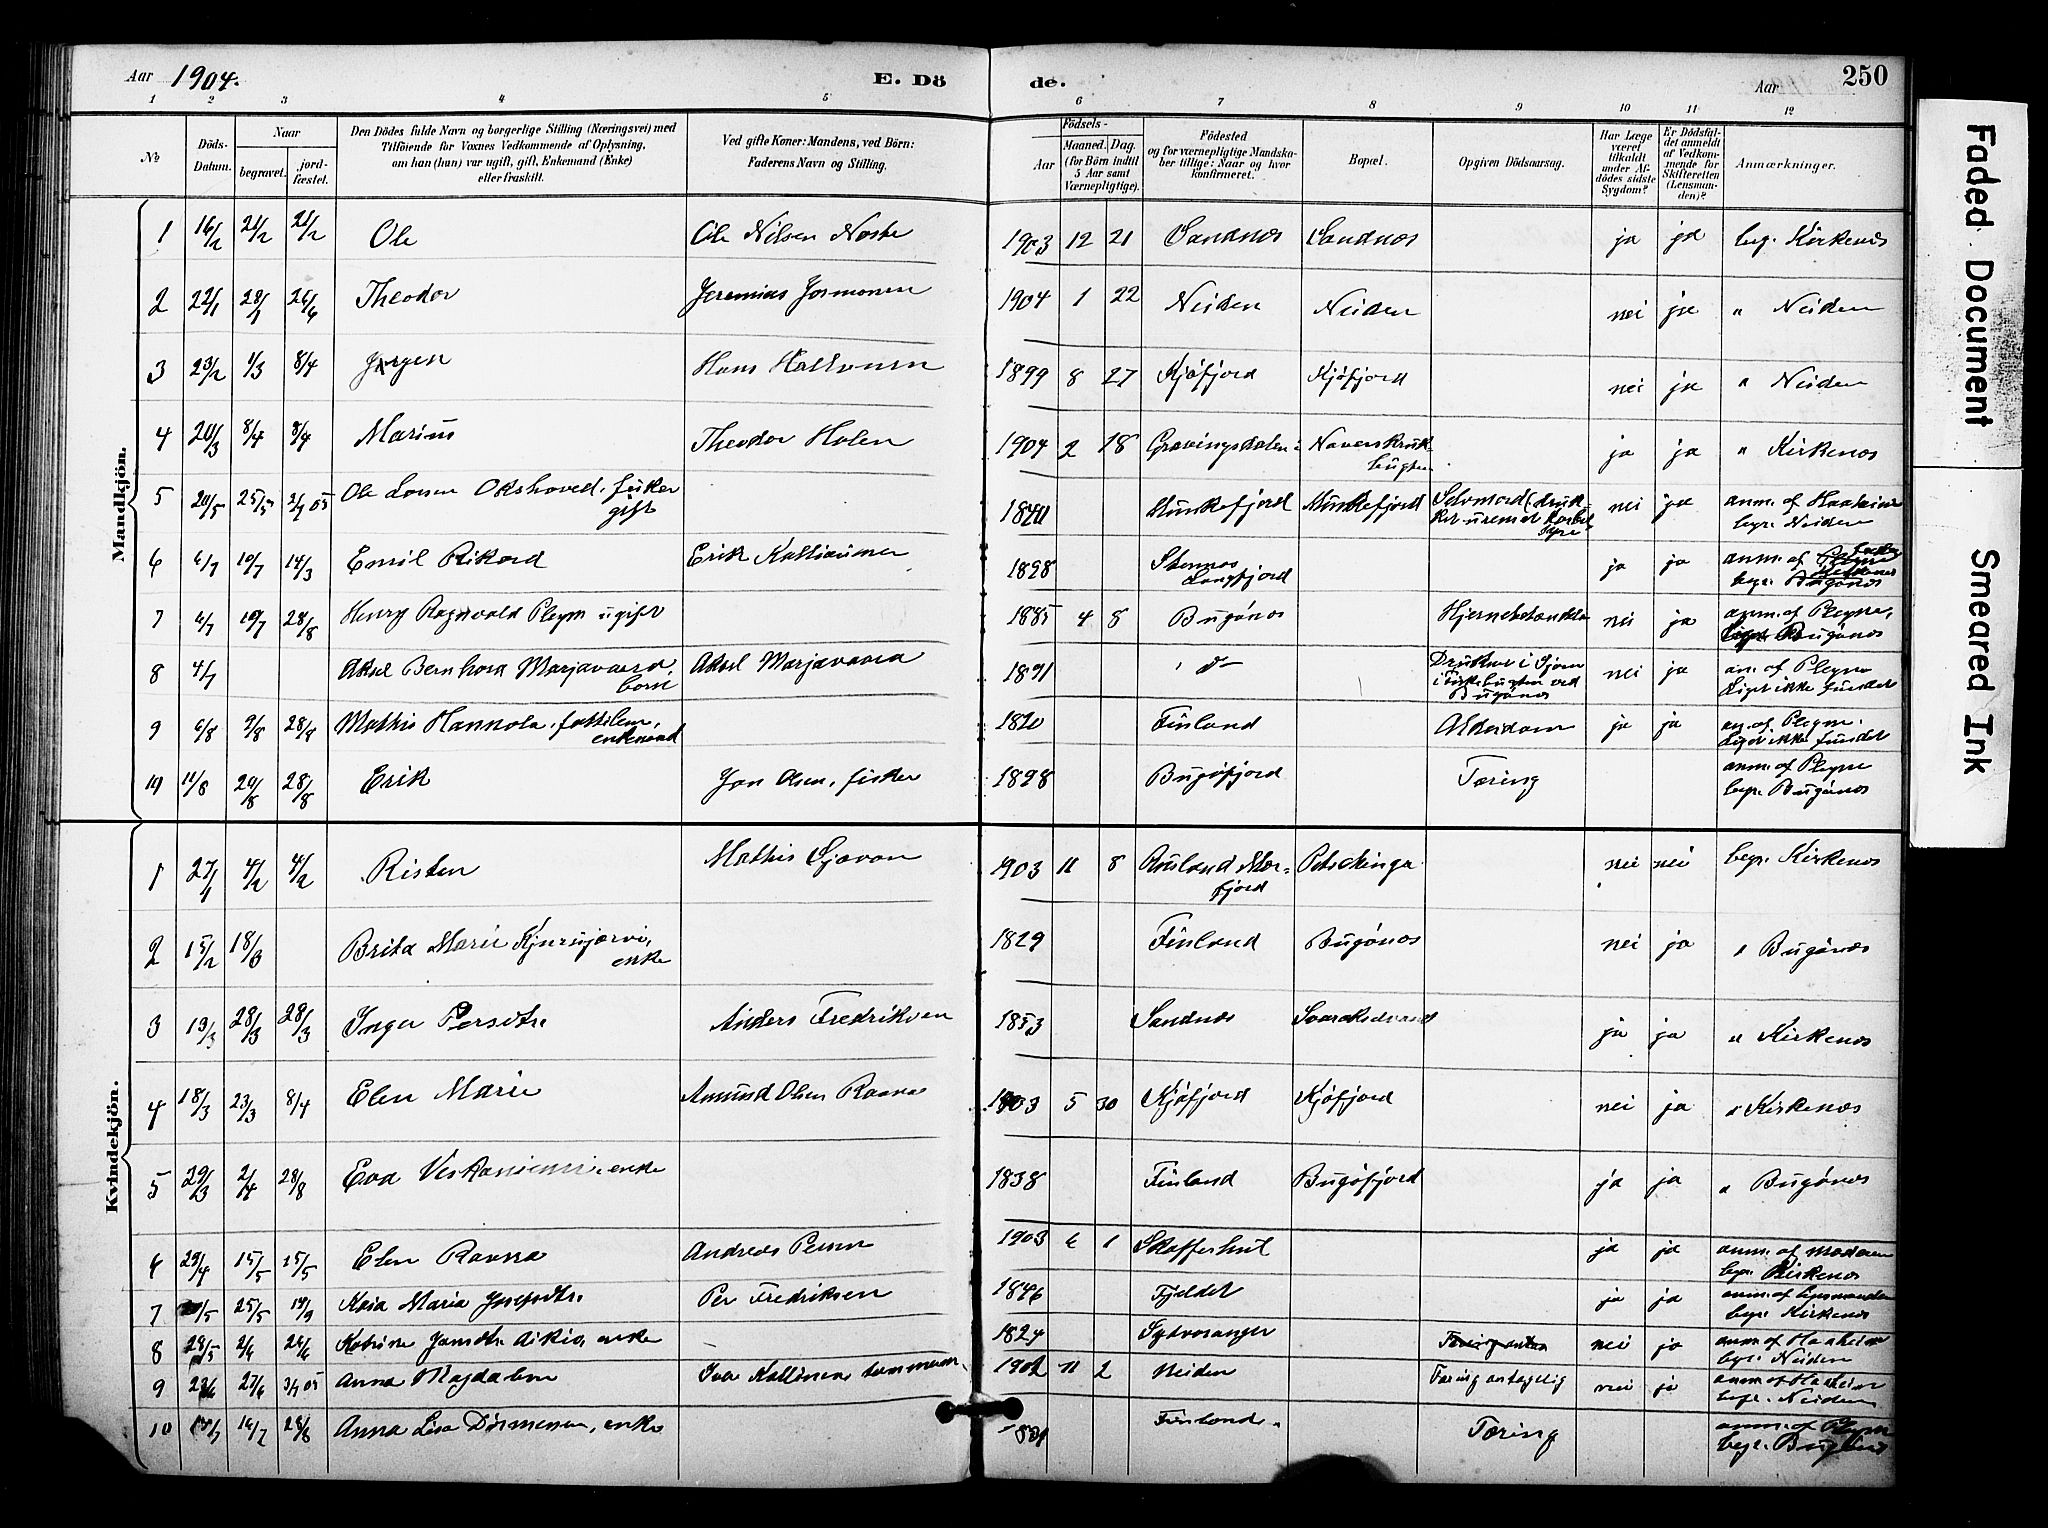 Aar 1904. E. Dö de. Aar 250
1 2 3 4 5 6 7 8 9 10 11 12
No
Döds-Datum.
Naar
begravet.
jord-fæstet.
Den Dödes fulde Navn og borgerlige Stilling (Næringsvei) med
Tilföiende for Voxnes Vedkommende af Oplysning,
om han (hun) var ugift, gift, Enkemand (Enke)
eller fraskilt.
Ved gifte Koner: Mandens, ved Börn:
Faderens Navn og Stilling.
Födsels-
Aar
Maaned. Dag.
(for Börn indtil
5 Aar samt
Værnepligtige).
Födested
og for værnepligtige Mandska-
ber tillige: Naar og hvor
konfirmeret.
Bopæl.
Opgiven Dödsaarsag.
Har Læge
været
tilkaldt
under Af-
dödes sidste
Sygdom?
Er Dödsfal-
det anmeldt
af Vedkom-
mende for
Skifteretten
(Lensman-
den)?
Anmærkninger.
Mandkjön.
1 16/2 21/2 21/2 Ole Ole Nilsen Noste 1903 12 21 Sandnæs Sandnæs ja ja beg. Kirkenæs
2 22/1 28/1 26/6 Theodor Jeremias Jormonen 1904 1 22 Neiden Neiden nei ja " Neiden
3 23/2 1/3 8/4 Jørgen Hans 1899 8 27 Kjöfjord Kjöfjord nei ja " Neiden
4 20/3 8/4 8/4 Marius Theodor Holen 1904 2 18 ja ja " Kirkenæs
5 20/5 25/5 2/7 05 Ole Larsen Okshoved, fisker
gift Munkefjord Munkefjord Selvmord nei ja anm. af Haaheim
begr. Neiden
6 6/7 10/7 14/3 Emil Rikard Erik 1898 Langfjord ja ja anm. af
begr. Bugönæs
7 4/7 10/7 28/8 Henry Ragnvald Pleym ugift 1885 4 8 Bugönæs nei ja anm. af Pleym,
Bugönæs
8 4/7 Aksel Bernhard Marjavaara
barn Aksel Marjavaara 1891 " d- Druknet i Sjöen
ved
Bugönæs nei ja an. af Pleym
Liget ikke fundet
9 6/8 9/8 28/8 Mathis Hannola, fattiglem,
enkemand 1820 Finland Alderdom ja ja an. af Pleym.
Liget ikke fundet
10 11/8 20/8 28/8 Erik Jon Olsen, fisker 1898 Bugöfjord Tæring anm. af Pleym
begr. Bugönæs
Kvindekjön.
1 27/1 4/2 4/2 Risten Mathis 1903 11 8 Rusland
fjord Petschinga nei nei begr. Kirkenæs
2 15/2 18/3 Brita Marie
enke 1829 Finland Bugönæs nei ja " Bugönæs
3 19/3 28/3 28/3 Inger Persdtr. Anders Fredriksen 1853 Sandnæs ja ja " Kirkenæs
4 18/3 23/3 8/4 Elen Marie Amund Olsen Ravna 1903 5 30 Kjöfjord Kjöfjord nei ja " Kirkenæs
5 29/3 2/4 28/8 Eva enke 1838 Finland Bugöfjord ja ja " Bugönæs
6 29/4 15/5 15/5 Elen Ravna Andreas Persen 1903 6 1 Skafferhul ja ja anm. af moderen
begr. Kirkenæs
7 25/5 Maria Josefsdtr. Per Fredriksen 1846 Fjeldet ja ja anm. af
begr. Kirkenæs
8 29/5 2/6 26/6 Katrine Jansdtr. Aikio, enke 1824 Sydvaranger nei ja anm. af Haaheim
begr. Neiden
9 27/6 3/7 05 Anna Magdalena Ivar 1902 11 2 Neiden Tæring antagelig nei ja anm. af Haaheim
begr. Neiden
10 28/8 Anna Lisa enke Finland. Tæring anm. af Pleym
begr. Bugönæs
Faded Document
Smeared Ink